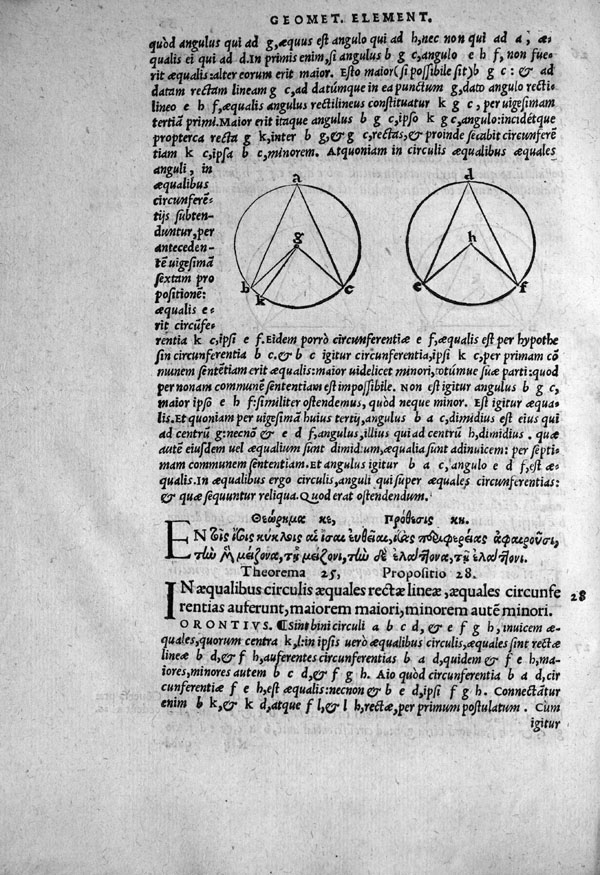 GEOMET. ELEMENT.
quòd angulus qui ad g, æquus est angulo qui ad h, nec non qui ad a, æ-
qualis ei qui ad d. In primis enim, si angulus b g c, angulo e h f, non fue-
rit æqualis: alter eorum erit maior. Esto maior (si possibile sit) b g c: & ad
datam rectam lineam g c, ad datúmque in ea punctum g, dato angulo recti-
lineo e h f, æqualis angulus rectilineus constituatur k g c, per uigesimam
tertiã primi. Maior erit itaque angulus b g c, ipso k g c, angulo: incidétque
propterea recta g k, inter b g, & g c, rectas, & proinde secabit circunferẽ
tiam k c, ipsa b c, minorem. Atquoniam in circulis æqualibus æquales
anguli, in
æqualibus
circunferẽ-
tijs subten-
duntur, per
anteceden-
tẽ uigesimã
sextam pro
positionẽ:
æqualis e-
rit circũfe-
a
g
b
k
c
d
h
e
f
rentia k c, ipsi e f. Eidem porrò circunferentiæ e f, æqualis est per hypothe
sin circunferentia b c. & b c igitur circunferentia, ipsi k c, per primam cõ
munem sentẽtiam erit æqualis: maior uidelicet minori, totúmue suæ parti: quod
per nonam communẽ sententiam est impossibile. Non est igitur angulus b g c,
maior ipso e h f: similiter ostendemus, quòd neque minor. Est igitur æqua-
lis. Et quoniam per uigesimã huius tertij, angulus b a c, dimidius est eius qui
ad centrũ g: necnõ & e d f, angulus, illius qui ad centrũ h, dimidius. quæ
autẽ eiusdem uel æqualium sunt dimidium, æqualia sunt adinuicem: per septi-
mam communem sententiam. Et angulus igitur b a c, angulo e d f, est æ-
qualis. In æqualibus ergo circulis, anguli qui super æquales circunferentias:
& quæ sequuntur reliqua. Quod erat ostendendum.
Θεώρημα κε, Πρόθεσις κη.
Εν τοῖς ἴσοις κύκλοις αἱ ἴσαι εὐθεῖαι, ἴσας περιφερείας ἀφαιροῦσι,
τὴν μὲν μείζονα, τῇ μείζονι, τὴν δὲ ἐλάττονα, τῇ ἐλάττονι.
Theorema 25, Propositio 28.
IN æqualibus circulis æquales rectæ lineæ, æquales circunfe 28
rentias auferunt, maiorem maiori, minorem autẽ minori.
ORONTIVS. ¶ Sint bini circuli a b c d, & e f g h, inuicem æ-
quales, quorum centra k, l: in ipsis uerò æqualibus circulis, æquales sint rectæ
lineæ b d, & f h, auferentes circunferentias b a d, quidem & f e h, ma-
iores, minores autem b c d, & f g h. Aio quòd circunferentia b a d, cir
cunferentiæ f e h, est æqualis: necnon & b e d, ipsi f g h. Connectãtur
enim b k, & k d, atque f l, & l h, rectæ, per primum postulatum. Cum
igitur